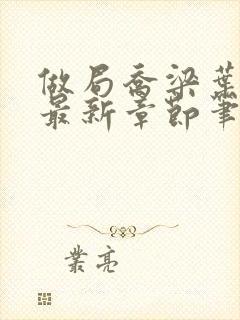 做局乔梁叶
最新章节笔
业亮